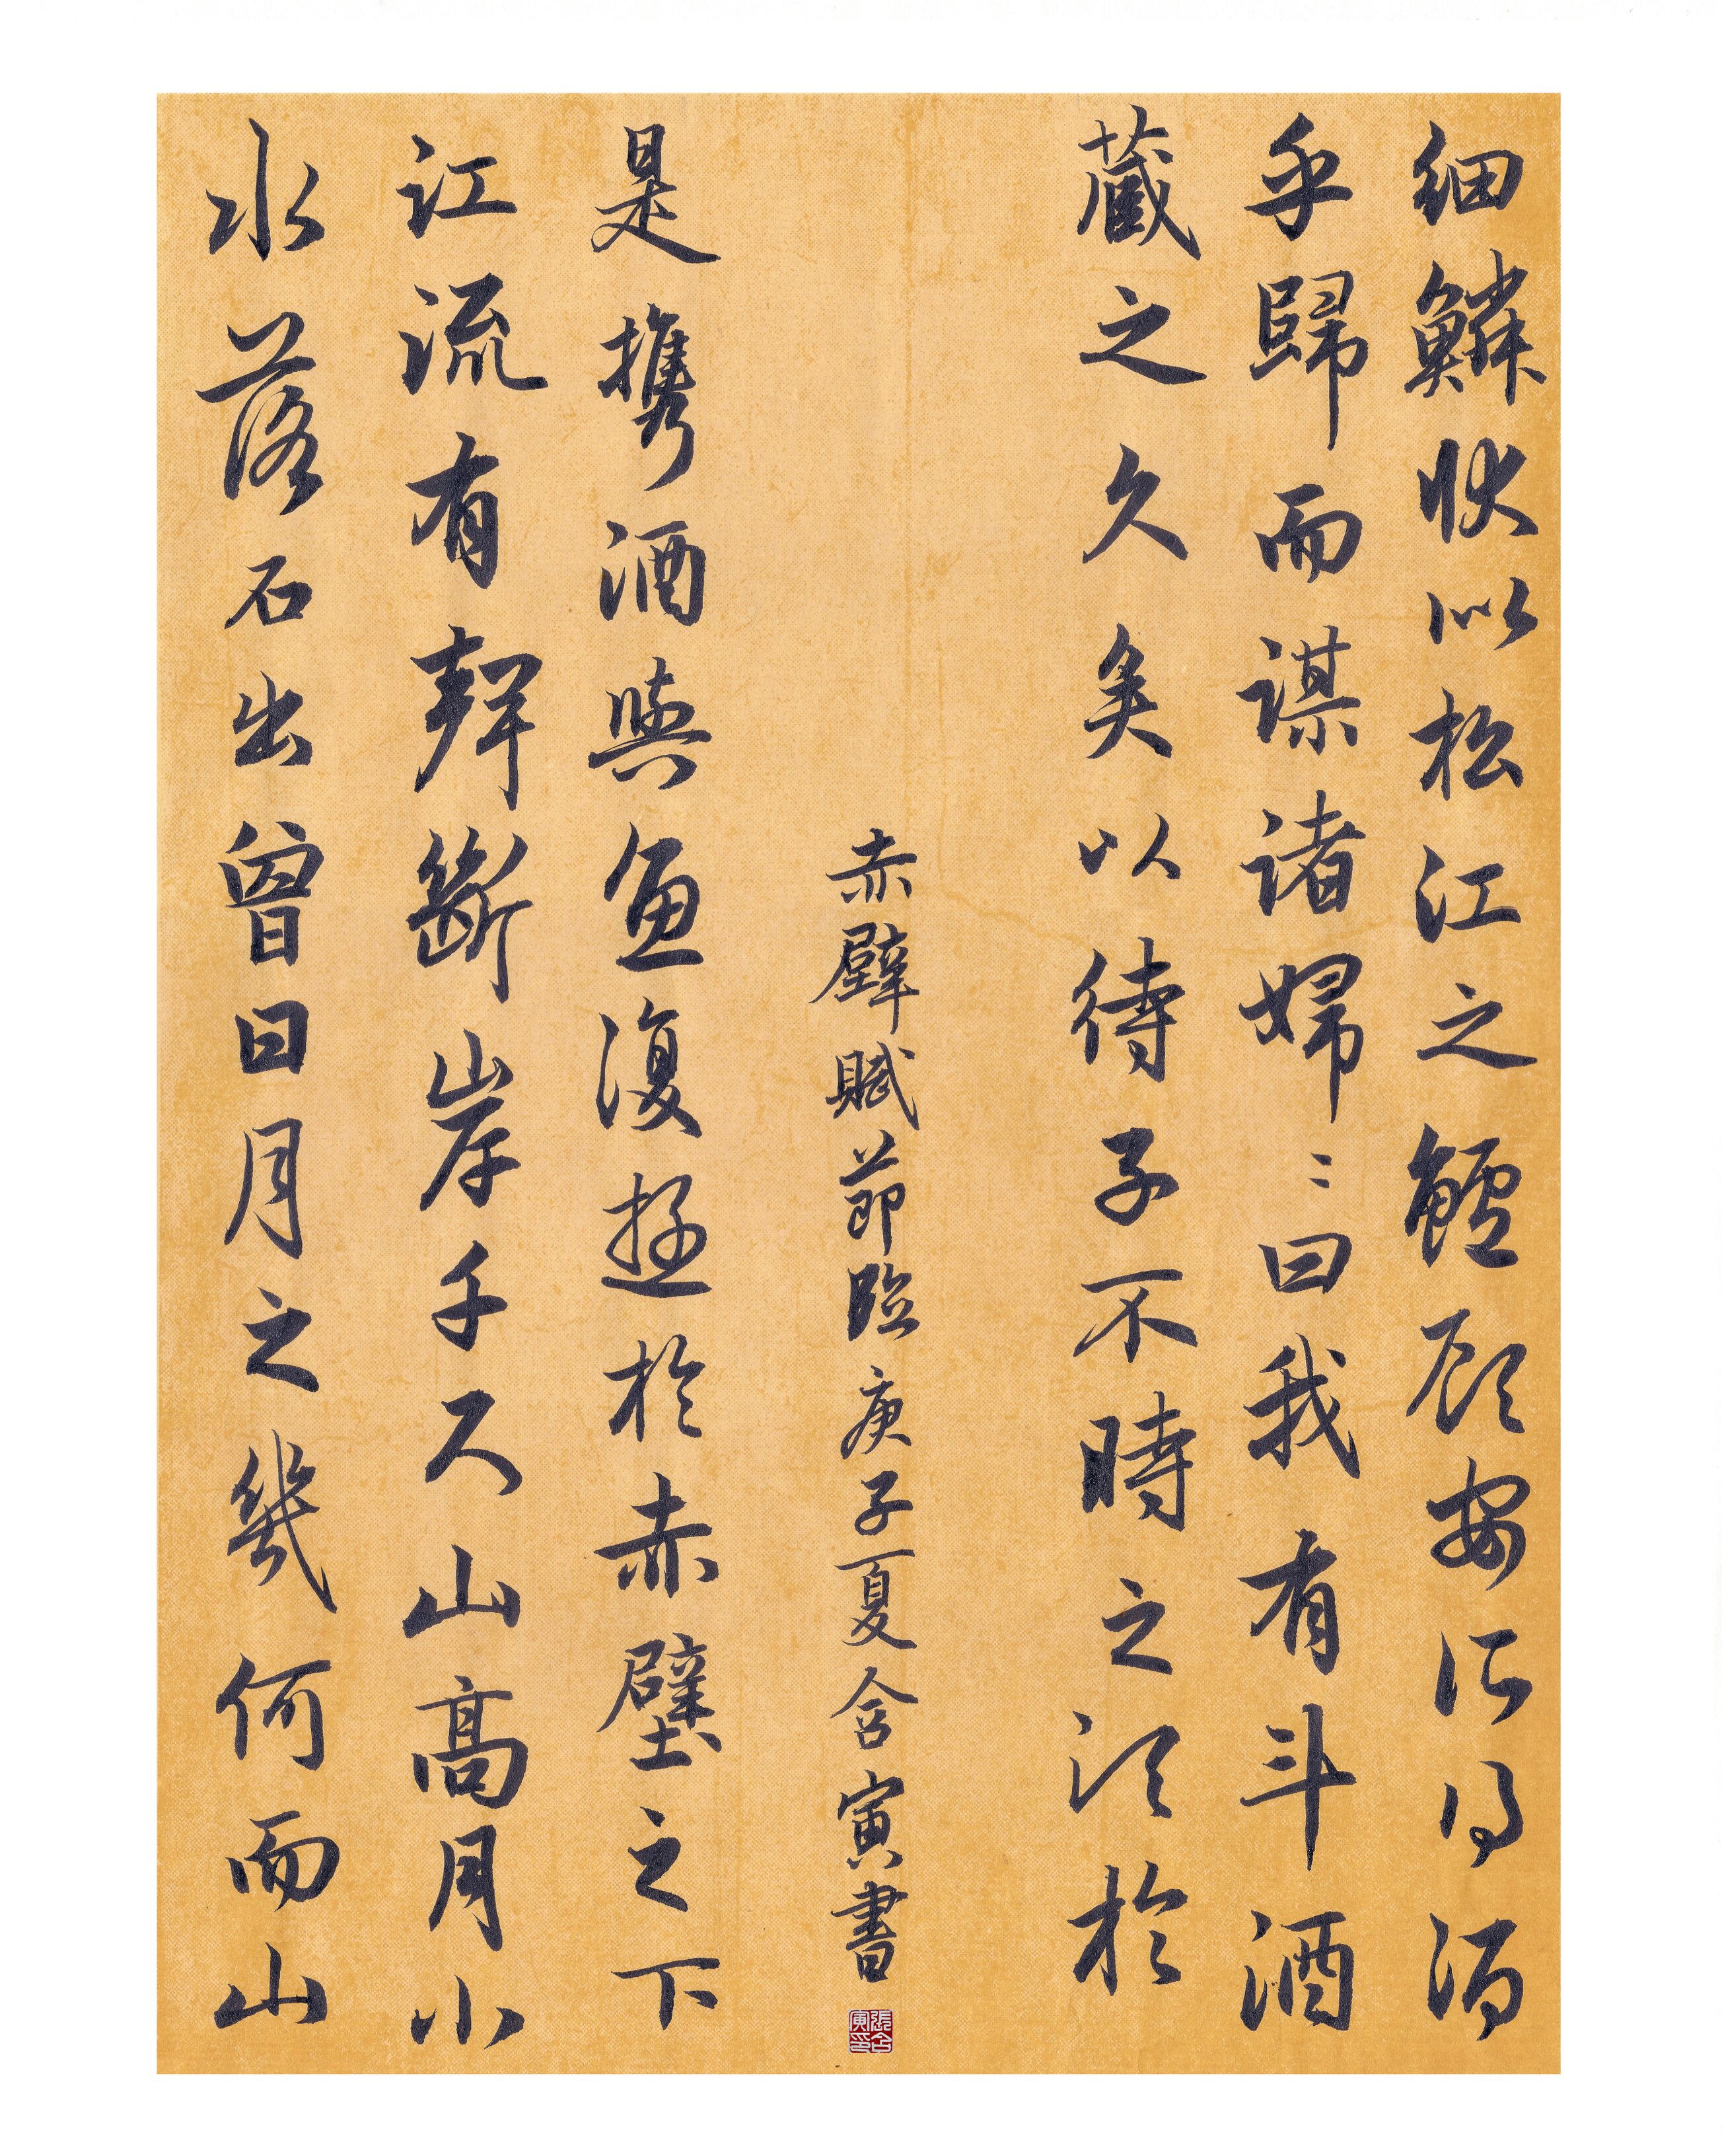 細鱗狀似松江之鱸顧安所得酒
乎歸而謀諸婦〻曰我有斗酒
藏之久矣以待子不時之須於
赤壁賦節臨庚子夏含寅書
張含寅印
是攜酒與魚復遊於赤壁之下
江流有聲斷岸千尺山高月小
水落石出曾日月之幾何而山